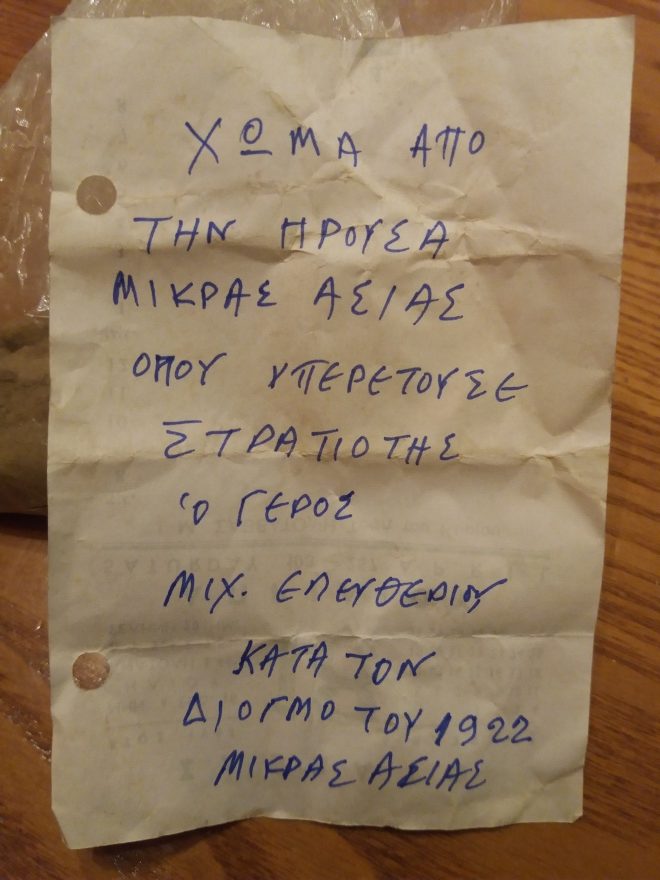 ΧΩΜΑ ΑΠΟ
ΤΗΝ ΠΡΟΥΣΑ
ΜΙΚΡΑΣ ΑΣΙΑΣ
ΟΠΟΥ ΥΠΕΡΕΤΟΥΣΕ
ΣΤΡΑΤΙΟΤΗΣ
Ὁ ΓΕΡΟΣ
ΜΙΧ. ΕΛΕΥΘΕΡΙΟΥ
ΚΑΤΑ ΤΟΝ
ΔΙΟΓΜΟ ΤΟΥ 1922
ΜΙΚΡΑΣ ΑΣΙΑΣ